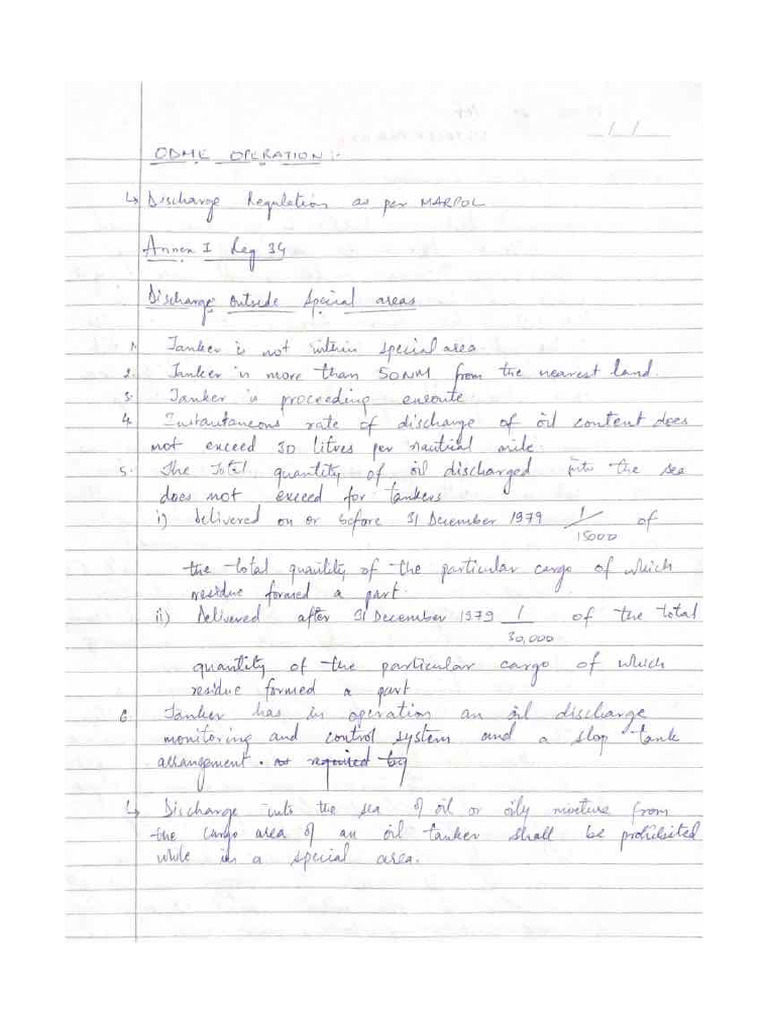 ODME OPERATION:-
↳ Discharge Regulation as per MARPOL
Annex I Reg 34
Discharge outside special areas
1. Tanker is not within special area
2. Tanker is more than 50NM from the nearest land.
3. Tanker is proceeding enroute
4. Instantaneous rate of discharge of oil content does
not exceed 30 litres per nautical mile.
5. The Total quantity of oil discharged into the sea
does not exceed for tankers
i) delivered on or before 31 December 1979 1/15000 of
the total quantity of the particular cargo of which
residue formed a part.
ii) Delivered after 31 December 1979 1/30,000 of the total
quantity of the particular cargo of which
residue formed a part
6. Tanker has in operation an oil discharge
monitoring and control system and a slop tank
arrangement. as required by
↳ Discharge into the sea of oil or oily mixture from
the cargo area of an oil tanker shall be prohibited
while in a special area.